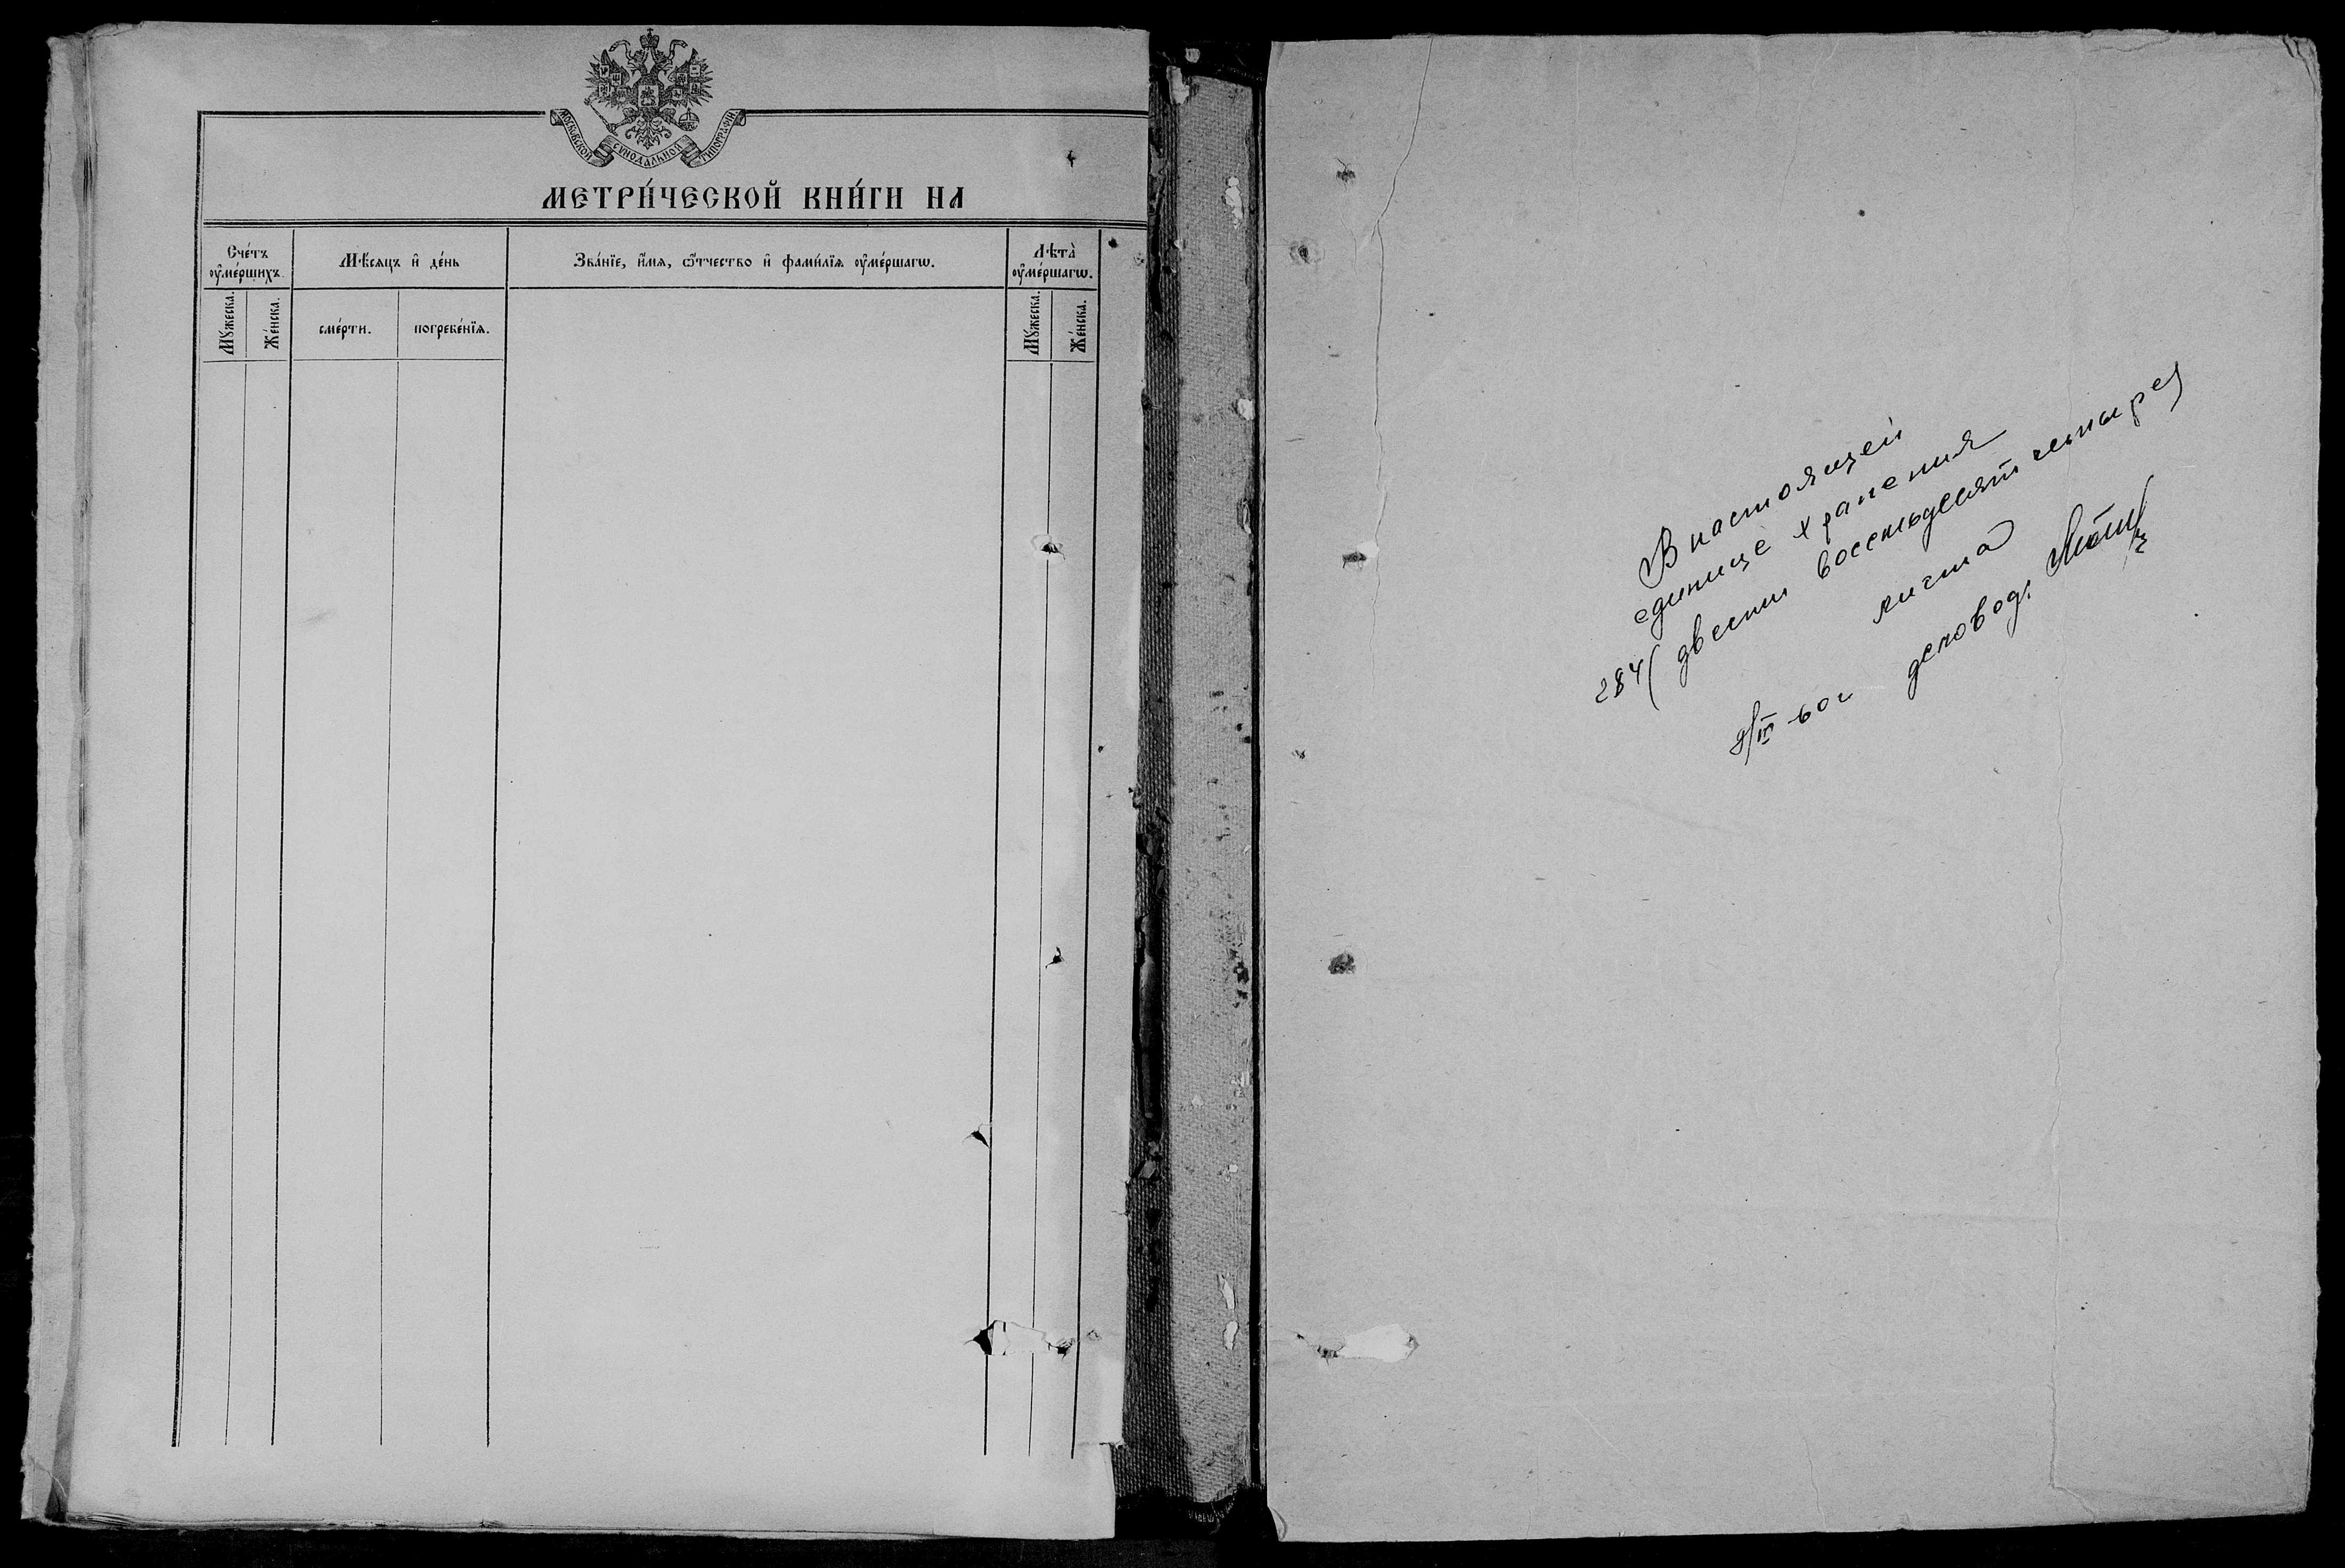 МОСКОВСКОЙ СѴНОДАЛЬНОЙ ТИПОГРАФІИ
МЕТРИ́ЧЕСКОЙ КНИ́ГИ НА
Сче́тъ ᲂу҆ме́ршихъ.
Мѣ́сяцъ и҆ де́нь
Зва́нїе, и҆́мѧ, ѻ҆́тчество и҆ фами́лїѧ ᲂу҆ме́ршагѡ.
Лѣта̀ ᲂу҆ме́ршагѡ.
Мꙋ́жеска.
Же́нска.
сме́рти.
погребе́нїѧ.
Мꙋ́жеска.
Же́нска.
В настоящей
единице хранения
284 (двести восемьдесят четыре)
листа
9/III-60г деловод.